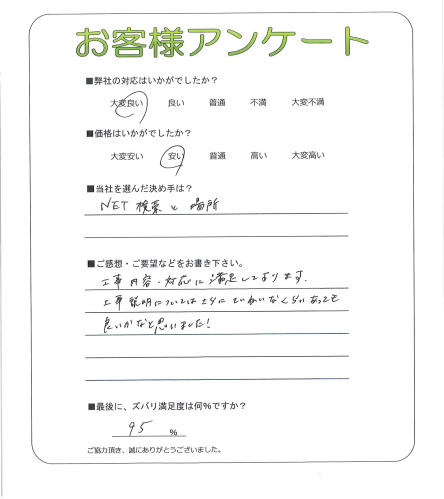 お客様アンケート
■弊社の対応はいかがでしたか？
大変良い 良い 普通 不満 大変不満
■価格はいかがでしたか？
大変安い 安い 普通 高い 大変高い
■当社を選んだ決め手は？
NET 検索と 場所
■ご感想・ご要望などをお書き下さい。
工事内容・対応に満足しております.
工事説明については さらに ていねいなくらいあっても
良いかなと思いました!
■最後に、ズバリ満足度は何%ですか？
95 %
ご協力頂き、誠にありがとうございました。